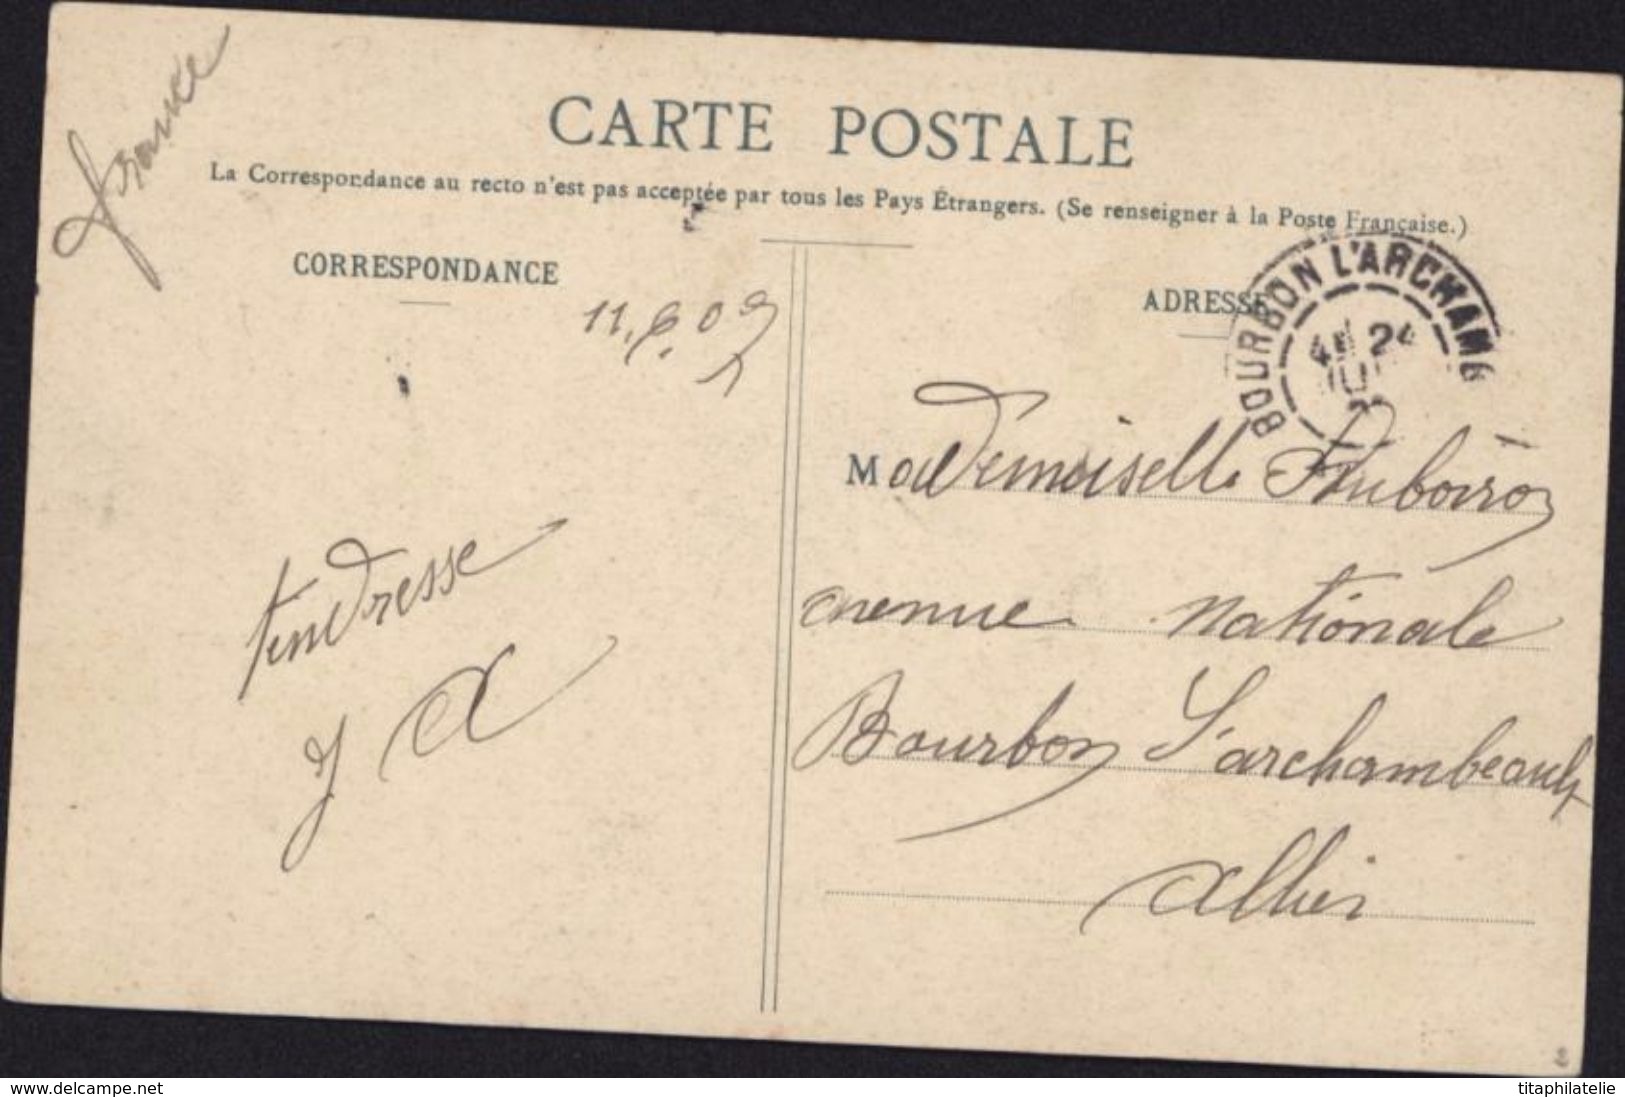 France
CARTE POSTALE
La Correspondance au recto n'est pas acceptée par tous les Pays Étrangers. (Se renseigner à la Poste Française.)
CORRESPONDANCE
ADRESSE
BOURBON L'ARCHAMB
24
11.6.09
Mademoiselle
avenue nationale
Bourbon L'archambeault
Allier
tendresse
www.delcampe.net
titaphilatelie